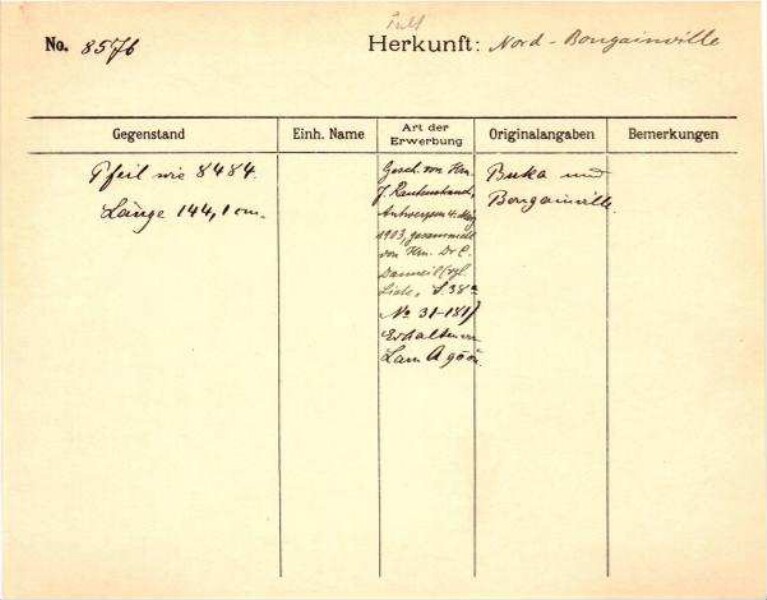 No. 8576
Herkunft: Nord-Bougainville
Gegenstand
Einh. Name
Art der
Erwerbung
Originalangaben
Bemerkungen
Pfeil wie 8484.
Länge 144,1 cm.
Gesch. von Hrn.
J.
Antwerpen 4. März
1903, gesammelt
von Hrn. Dr C.
Danneil (vgl.
Liste, S. 38a
No 31-181)
Erhalten von
Buka und
Bougainville.